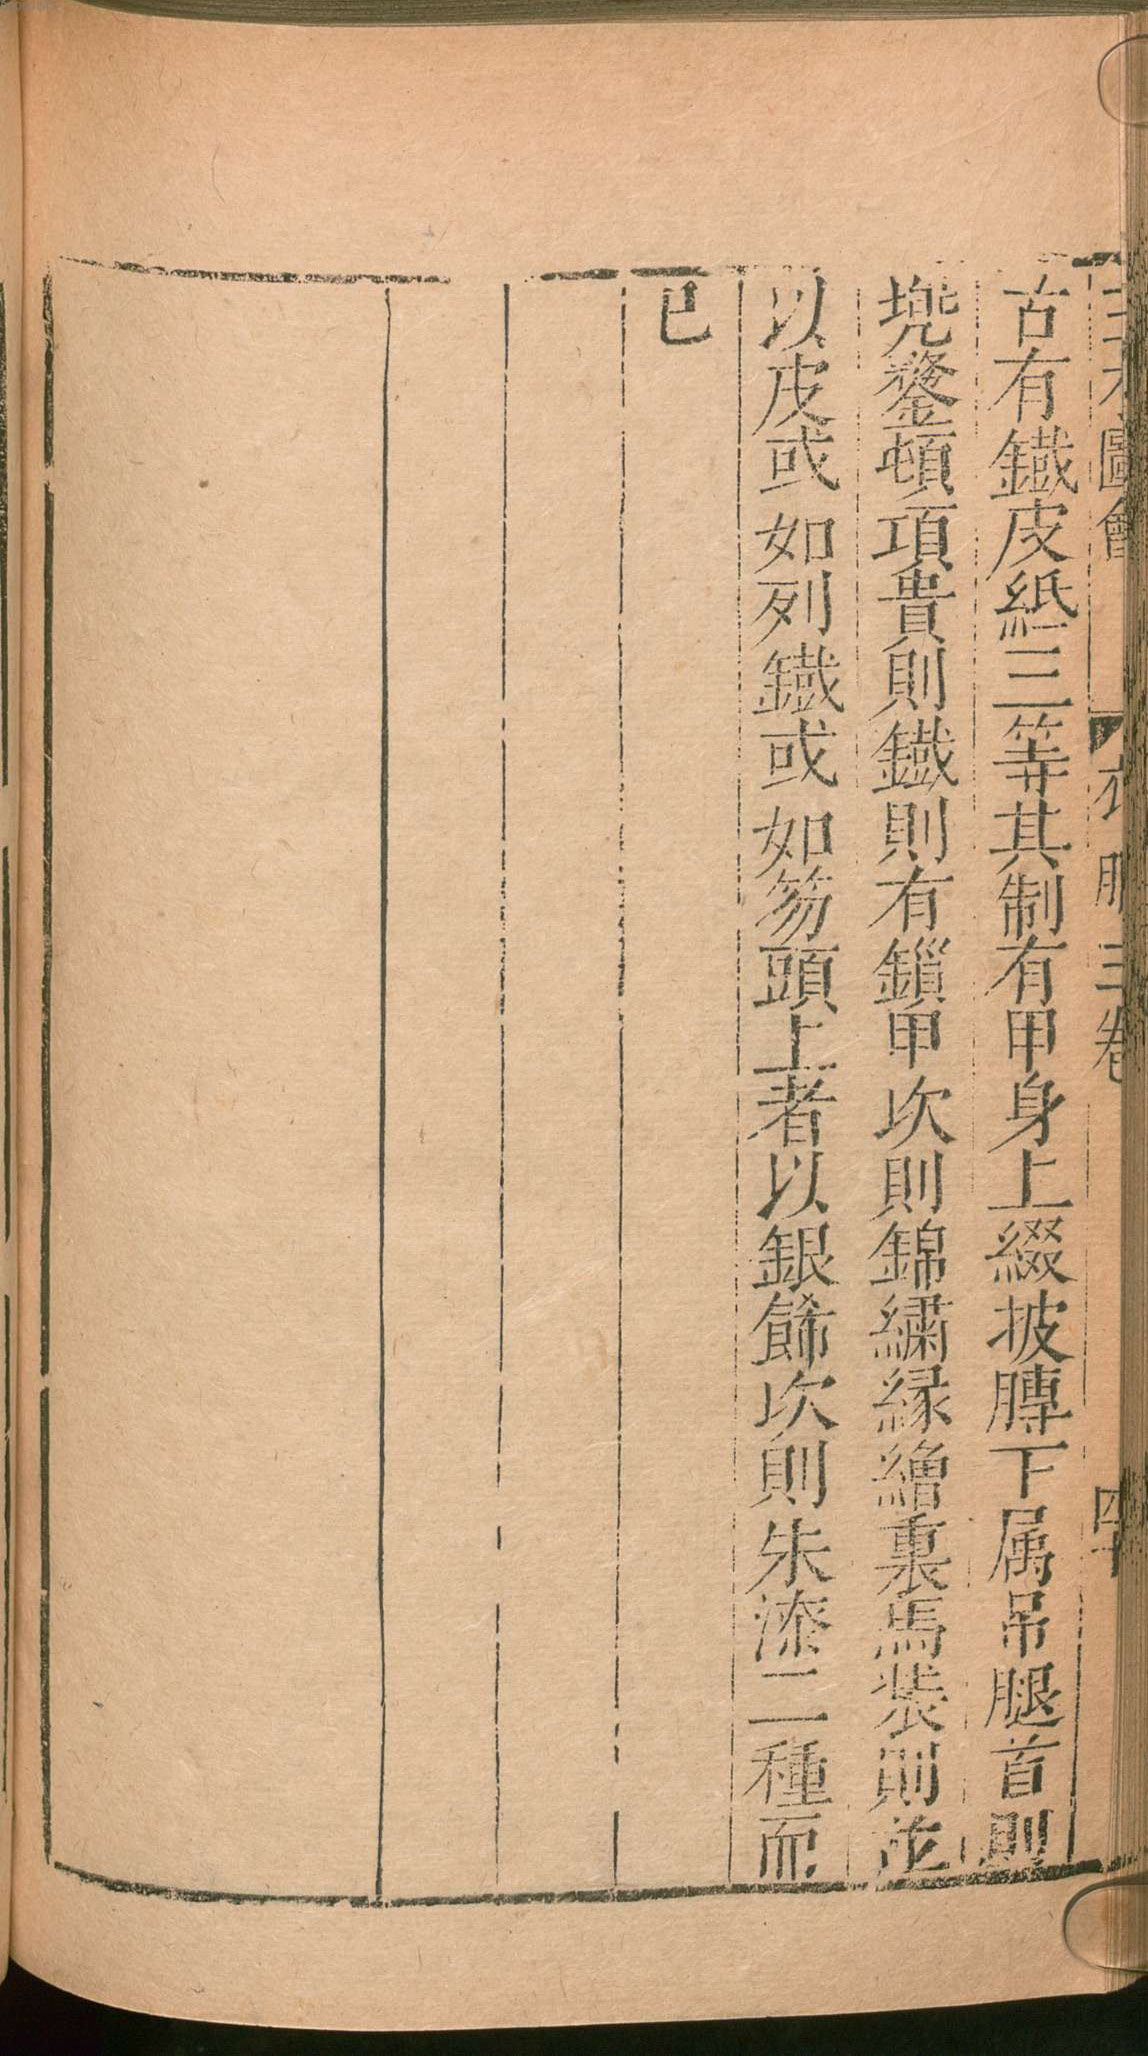 三才圖會 衣服三卷 四十
古有鐡皮紙三等其制有甲身上綴披膊下属吊腿首則
兠鍪頓項貴則鐡則有鎻甲次則錦繡縁繒裏馬装則並
以皮或如列鐡或如笏頭上者以銀餙次則朱漆二種而
已